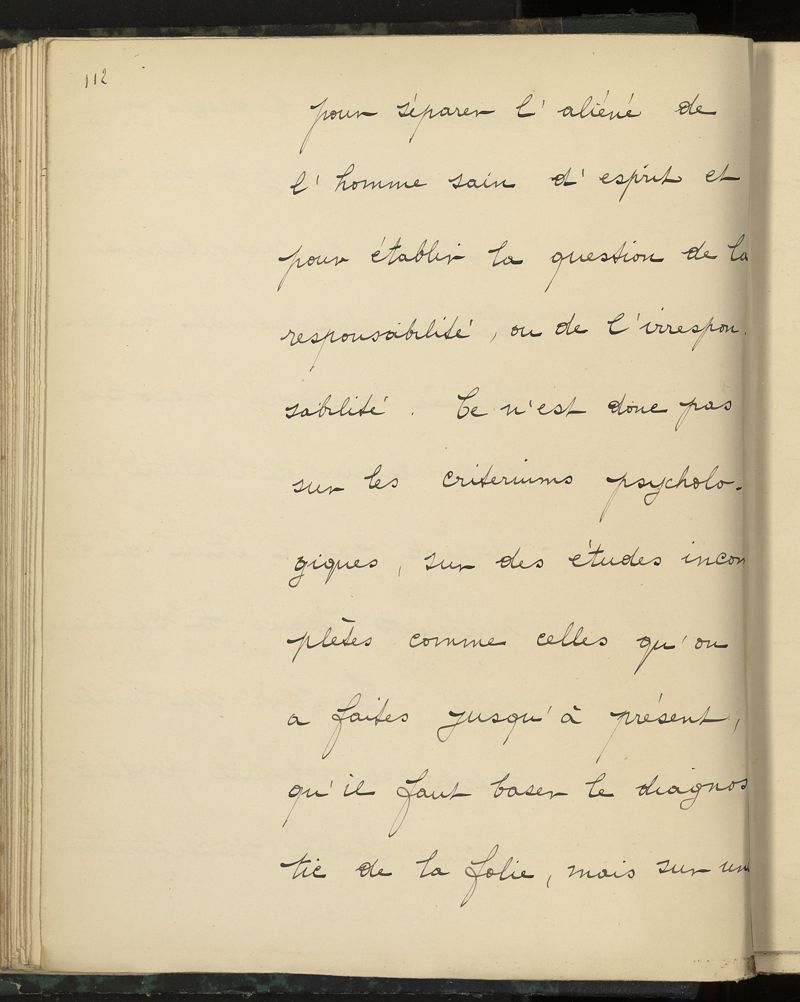 112
pour séparer l'aliéné de
l'homme sain d'esprit et
pour établir la question de la
responsabilité, ou de l'irrespon-
sabilité. Ce n'est donc pas
sur les criteriums psycholo-
giques, sur des études incom
plètes comme celles qu'on
a faites jusqu'à présent,
qu'il faut baser le diagnos
tic de la folie, mais sur un